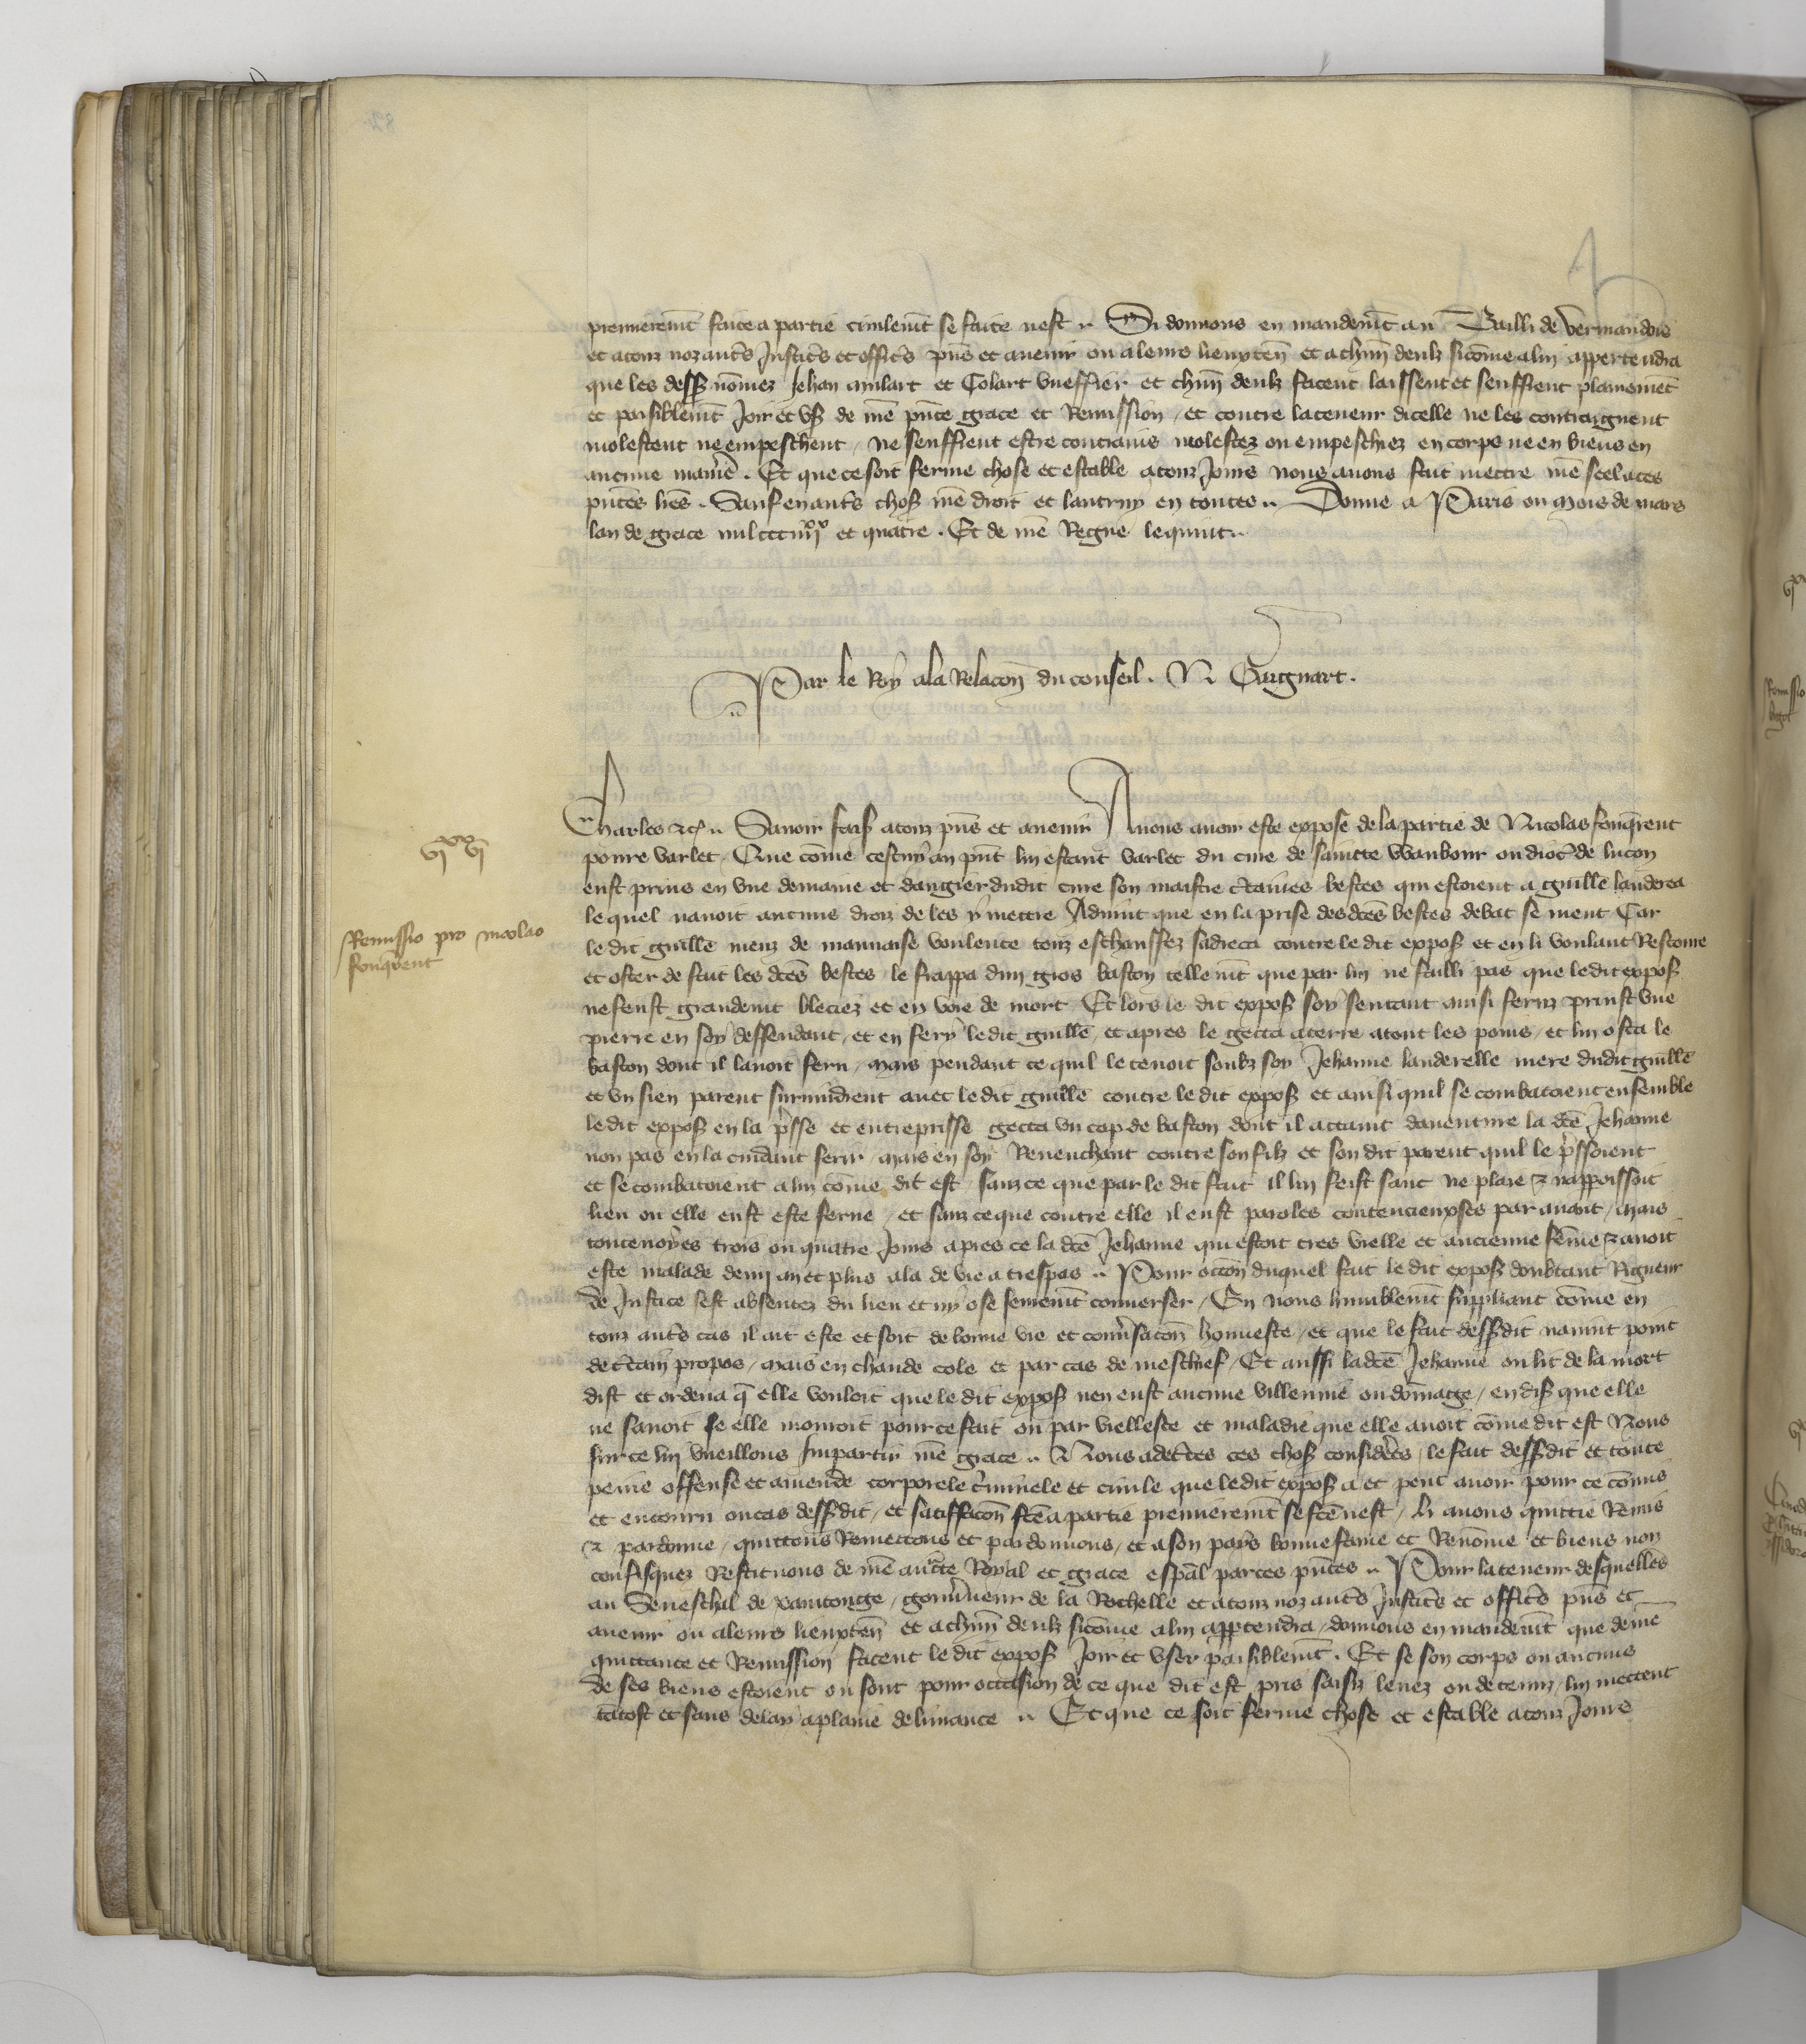 premieremt faite a partie civilemt se faite nest .. Si donnons en mandemt au Bailli de vermandois
et a touz noz autrs Justicrs et officrs pns et avenir ou a leurs lieuxten et a chun deulx sicome a lui appertendra
que les dess nomez Jehan et Colart et chun deulx facent laissent et seuffrent plainemet
et paisiblemt Joir et us de nre pnte grace et Remission / et contre la teneur dicelle ne les contraignent
molestent ne empeschent / ne seuffrent estre contrains molestez ou empeschiez en corps ne en biens en
aucune maniere . Et que ce soit ferme chose et estable a touz Jours nous avons fait mettre nre seel a ces
pntes lres . Sauf en autrs chos nre droit et lautruy en toutes .. Donne a Paris ou Mois de mars
lan de grace mil ccc iiiixx et quatre . Et de nre Regne le quint ..
Par le Roy a la Relacon du conseil . N Gaignart .
vixx vi
Remissio pro nicolao
fouqrent
Charles etc .. Savoir fais a touz pns et avenir A nous avoir este expose de la partie de Nicolas fouqrent
povre varlet / Que come cestuy an pnt lui estant varlet du cure de saincte Wanbour ou dioc de lucon
eust prins en une demaine et dangier dudit cure son maistre ctaines bestes qui estoient a guille landerea
lequel navoit aucuns droiz de les y mettre Advint que en la prise des dces bestes debat se meut Car
ledit guille meuz de mauvaise voulente touz eschauffez sadreca contre le dit expos et en li voulant Rescorre
et oster de fait les dces bestes / le frappa dun gros baston tellemt que par lui ne failli pas que ledit expos
ne feust grandemt bleciez et en voie de mort / Et lors le dit expos soy sentant ainsi feruz prinst une
pierre en soy deffendant / et en fery ledit guille / et apres le getta a terre a tout les poins / et lui osta le
baston dont il lavoit feru / Mais pendant ce quil le tenoit soubz soy Jehanne landerelle mere dudit guille
et un sien parent survindrent avec le dit guille contre le dit expos et ainsi quil se combatoient ensemble
ledit expos en la prsse et entreprisse getta un cop de baston dont il actaint daventure la dce Jehanne
non pas en la cuidant ferir / Mais en soy Revenchant contre son filz et son dit parent quil le prssoient
et se combatoient a lui come dit est / sanz ce que par le dit fait il lui feist sanc ne plaie & napparissoit
lieu ou elle eust este ferue / et sanz ce que contre elle il eust paroles contencieuses par avant / Mais
toutevoyes trois ou quatre Jours apres ce la dce Jehanne qui estoit tres vielle et ancienne feme & avoit
este malade demy an et plus ala de vie a trespas .. Pour occon duquel fait le dit expos doubtant Rigueur
de Justice sest absentez du lieu et ny ose seuremt converser / En nous humblemt suppliant come en
touz autrs cas il ait este et soit de bonne vie et convrsacon honneste / et que le fait dessdit navint point
de ctain propos / Mais en chaude cole et par cas de meschief / Et aussi ladce Jehanne ou lit de la mort
dist et ordena q elle vouloit que le dit expos nen eust aucune villennie ou domage / en dis que elle
ne savoit se elle mouroit pour ce fait ou par viellesce et maladie que elle avoit come dit est Nous
sur ce lui vueillons Impartir nre grace .. Nous adctes ces chos considres / le fait dessdit et toute
peine offense et amende corporele criminele et civile que ledit expos a et peut avoir pour ce comis
et encouru ou cas dessdit / et satiffacon fce a partie premieremt se fce nest / li avons quittie Remis
& pardonne / quittons Remettons et pardonnons / et a son pays bonne fame et Renomee et biens non
confisquez Restituons de nre aucte Royal et grace espal par ces pntes .. Pour la teneur desquelles
au Seneschal de xantonge / gouvrneur de la Rochelle et a touz noz autrs Justicrs et officrs pns et
avenir ou a leurs lieuxten et a chun deulx sicome a lui apptendra / donnons en mandemt que de nre
quittance et Remission facent le dit expos Joir et user paisiblemt . Et se son corps ou aucuns
de ses biens estoient ou sont pour occasion de ce que dit est pris saisiz levez ou detenuz / lui mettent
tatost et sans delay a plaine delivrance .. Et que ce soit ferme chose et estable a touz Jours